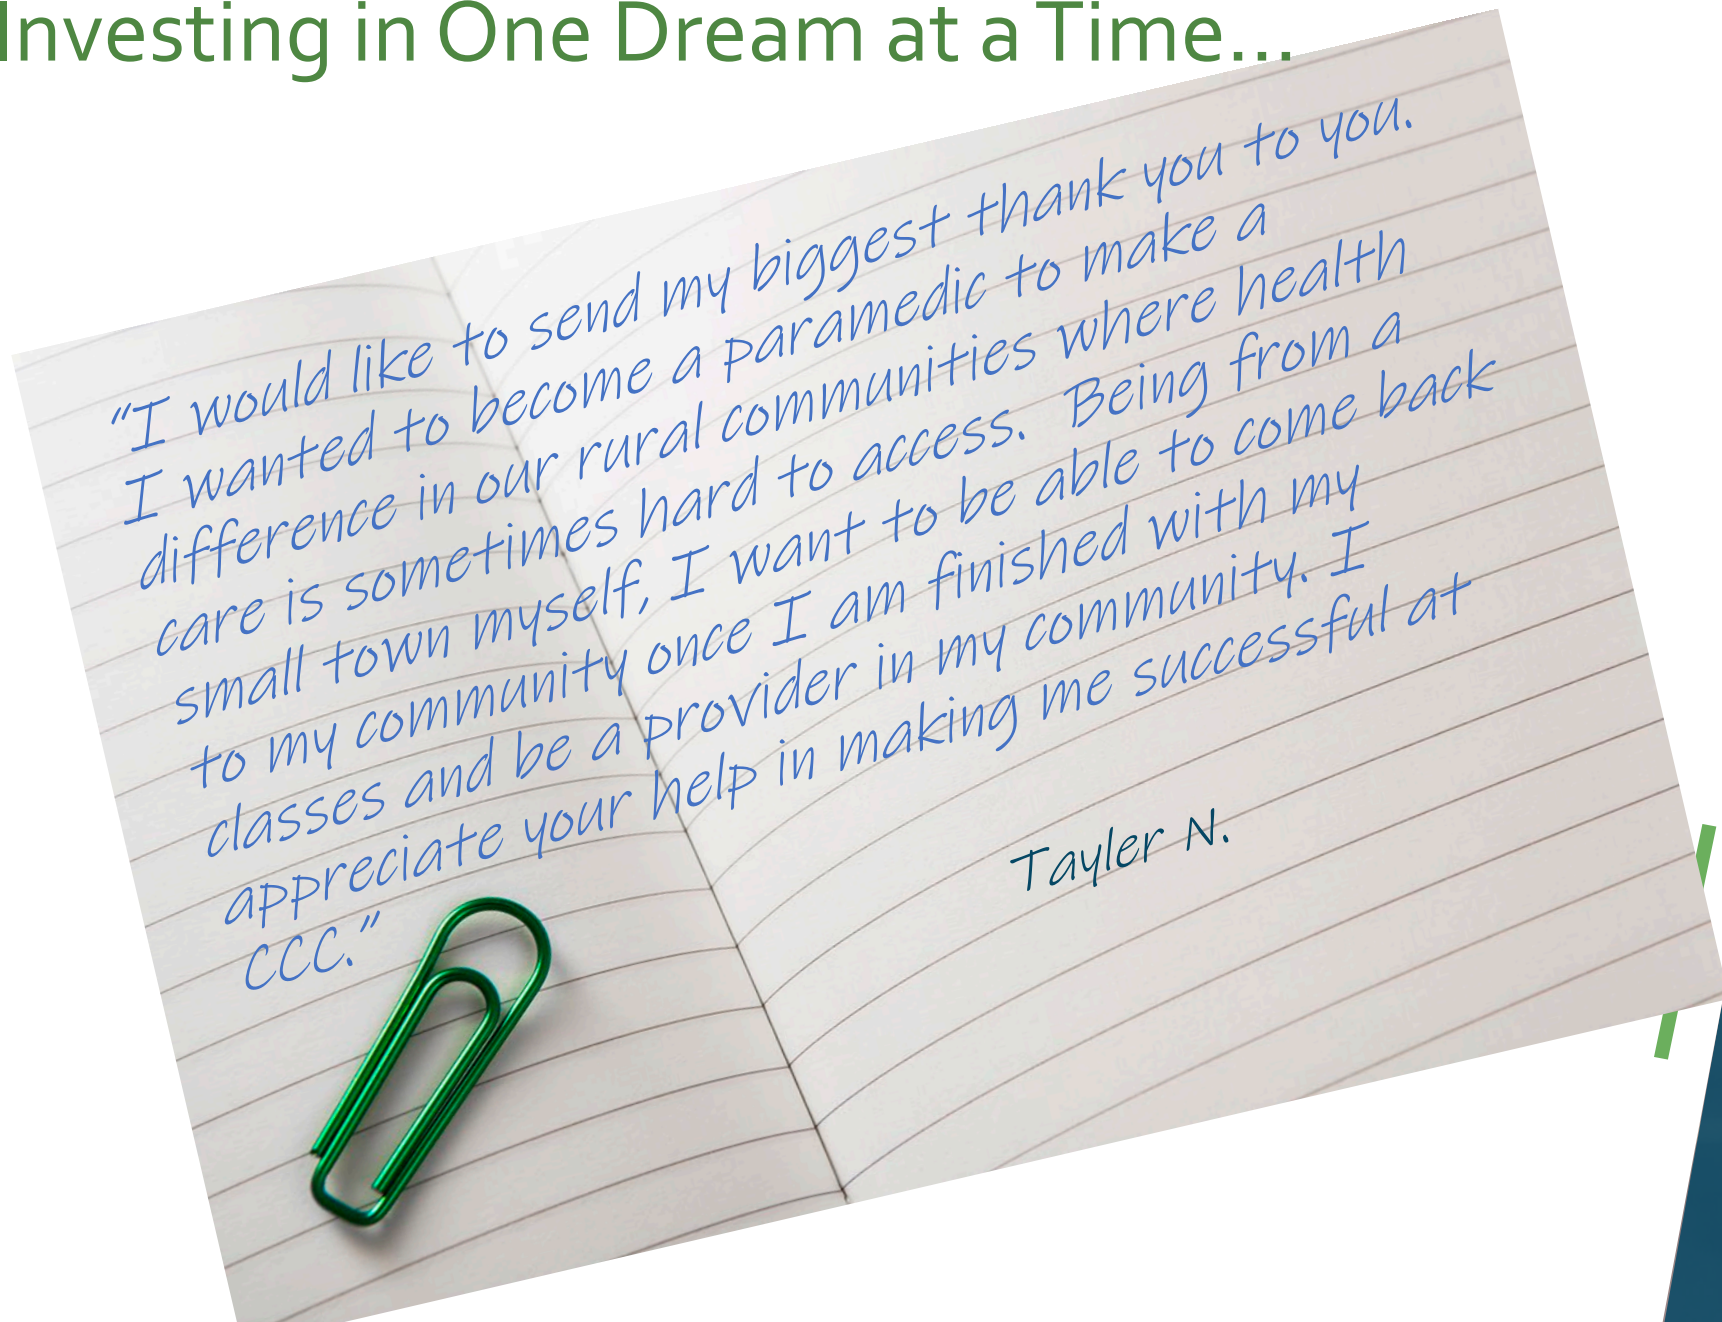 Investing in One Dream at a Time...
“I would like to send my biggest thank you to you.
I wanted to become a paramedic to make a
difference in our rural communities where health
care is sometimes hard to access.  Being from a
small town myself, I want to be able to come back
to my community once I am finished with my
classes and be a provider in my community. I
appreciate your help in making me successful at
CCC.”
Tayler N.